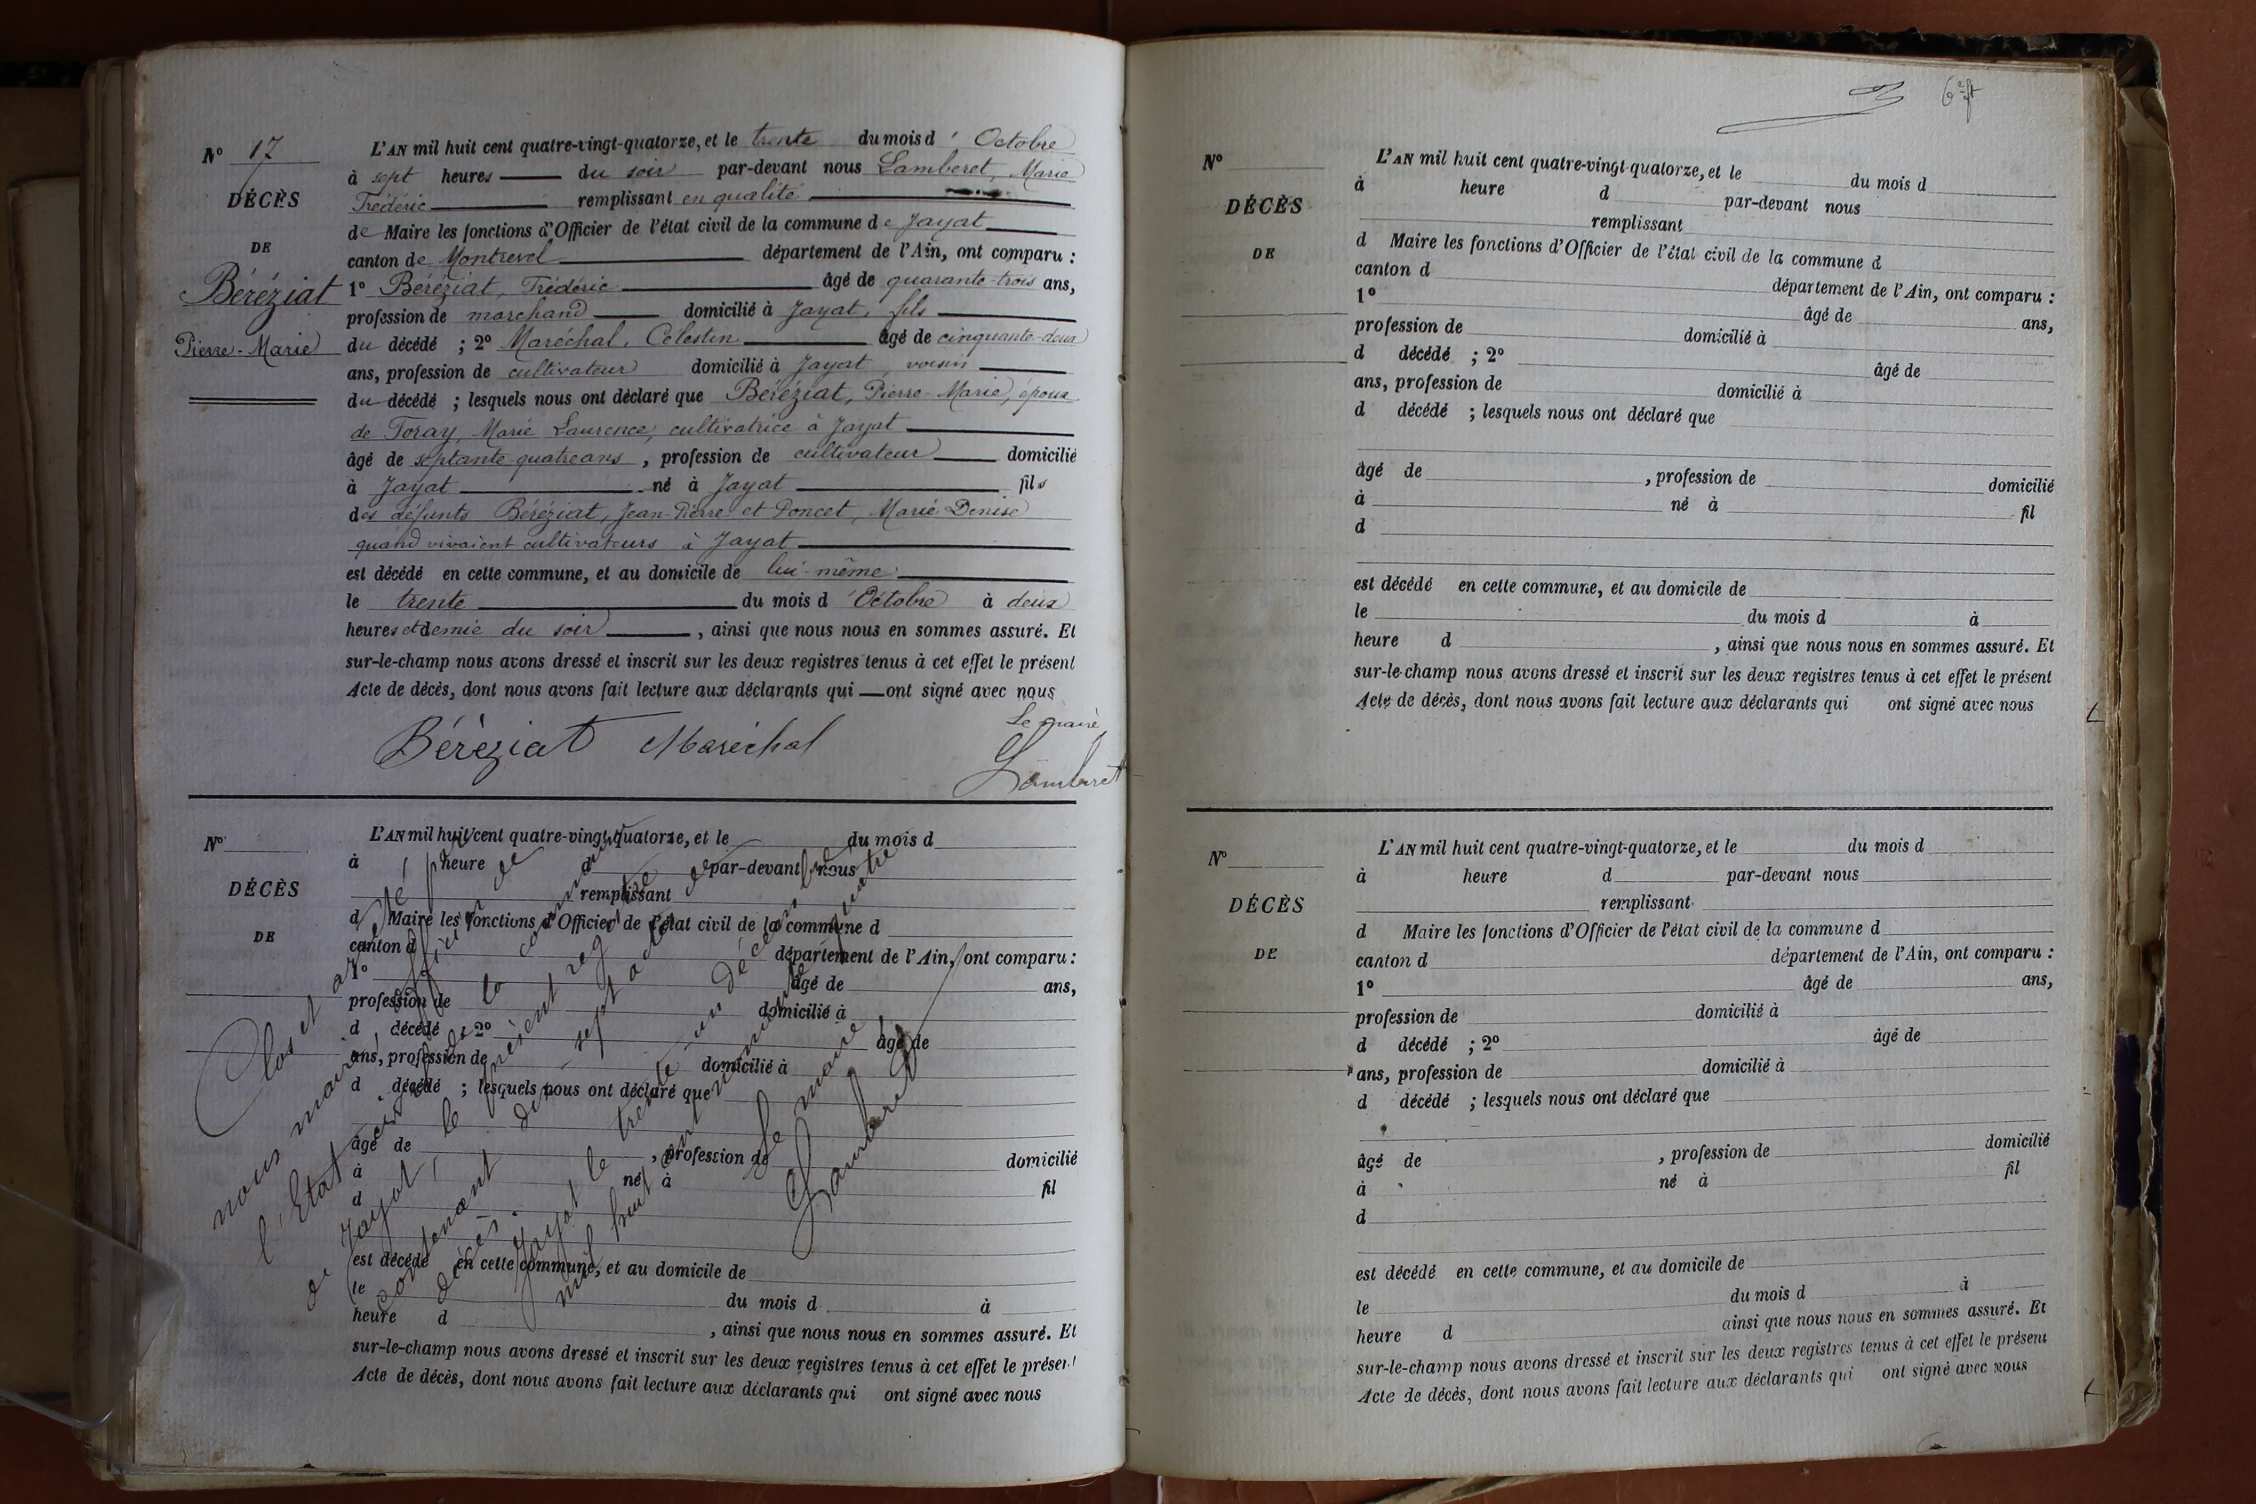 N° 17
DÉCÈS
DE
Béréziat
Pierre-Marie
L'AN mil huit cent quatre-vingt-quatorze, et le trente du mois d' Octobre
à sept heures du soir par-devant nous Lamberet, Marie
Frédéric remplissant en qualité
de Maire les fonctions d'Officier de l'état civil de la commune de Jayat
canton de Montrevel département de l'Ain, ont comparu :
1° Béréziat, Frédéric âgé de quarante-trois ans,
profession de marchand domicilié à Jayat, fils
du décédé ; 2° Maréchal, Célestin âgé de cinquante-deux
ans, profession de cultivateur domicilié à Jayat, voisin
du décédé ; lesquels nous ont déclaré que Béréziat, Pierre-Marie, époux
de Foray, Marie Laurence, cultivatrice à Jayat
âgé de septante-quatre ans, profession de cultivateur domicilié
à Jayat né à Jayat fils
des défunts Béréziat, Jean-Pierre et Poncet, Marie Denise
quand vivaient cultivateurs à Jayat
est décédé en cette commune, et au domicile de lui-même
le trente du mois d'Octobre à deux
heures et demie du soir, ainsi que nous nous en sommes assuré. Et
sur-le-champ nous avons dressé et inscrit sur les deux registres tenus à cet effet le présent
Acte de décès, dont nous avons fait lecture aux déclarants qui ont signé avec nous
Le maire
Béréziat Maréchal Lamberet
N°
DÉCÈS
DE
L'AN mil huit cent quatre-vingt-quatorze, et le du mois d
à heure d par-devant nous
remplissant
d Maire les fonctions d'Officier de l'état civil de la commune d
canton d département de l'Ain, ont comparu :
1° âgé de ans,
profession de domicilié à
d décédé ; 2° âgé de
ans, profession de domicilié à
d décédé ; lesquels nous ont déclaré que
âgé de , profession de domicilié
à né à fil
d
est décédé en cette commune, et au domicile de
le du mois d à
heure d , ainsi que nous nous en sommes assuré. Et
sur-le-champ nous avons dressé et inscrit sur les deux registres tenus à cet effet le présent
Acte de décès, dont nous avons fait lecture aux déclarants qui ont signé avec nous
Clos et arrêté par
nous maire, officier de
l'Etat civil de la commune
de Jayat, le présent registre
contenant dix-sept actes de
décès.
Jayat le trente-un décembre
mil huit cent nonante quatre
Le maire,
Lamberet
N°
DÉCÈS
DE
L'AN mil huit cent quatre-vingt-quatorze, et le du mois d
à heure d par-devant nous
remplissant
d Maire les fonctions d'Officier de l'état civil de la commune d
canton d département de l'Ain, ont comparu :
1° âgé de ans,
profession de domicilié à
d décédé ; 2° âgé de
ans, profession de domicilié à
d décédé ; lesquels nous ont déclaré que
âgé de , profession de domicilié
à né à fil
d
est décédé en cette commune, et au domicile de
le du mois d à
heure d , ainsi que nous nous en sommes assuré. Et
sur-le-champ nous avons dressé et inscrit sur les deux registres tenus à cet effet le présent
Acte de décès, dont nous avons fait lecture aux déclarants qui ont signé avec nous
N°
DÉCÈS
DE
L'AN mil huit cent quatre-vingt-quatorze, et le du mois d
à heure d par-devant nous
remplissant
d Maire les fonctions d'Officier de l'état civil de la commune d
canton d département de l'Ain, ont comparu :
1° âgé de ans,
profession de domicilié à
d décédé ; 2° âgé de
ans, profession de domicilié à
d décédé ; lesquels nous ont déclaré que
âgé de , profession de domicilié
à né à fil
d
est décédé en cette commune, et au domicile de
le du mois d à
heure d ainsi que nous nous en sommes assuré. Et
sur-le-champ nous avons dressé et inscrit sur les deux registres tenus à cet effet le présent
Acte de décès, dont nous avons fait lecture aux déclarants qui ont signé avec nous